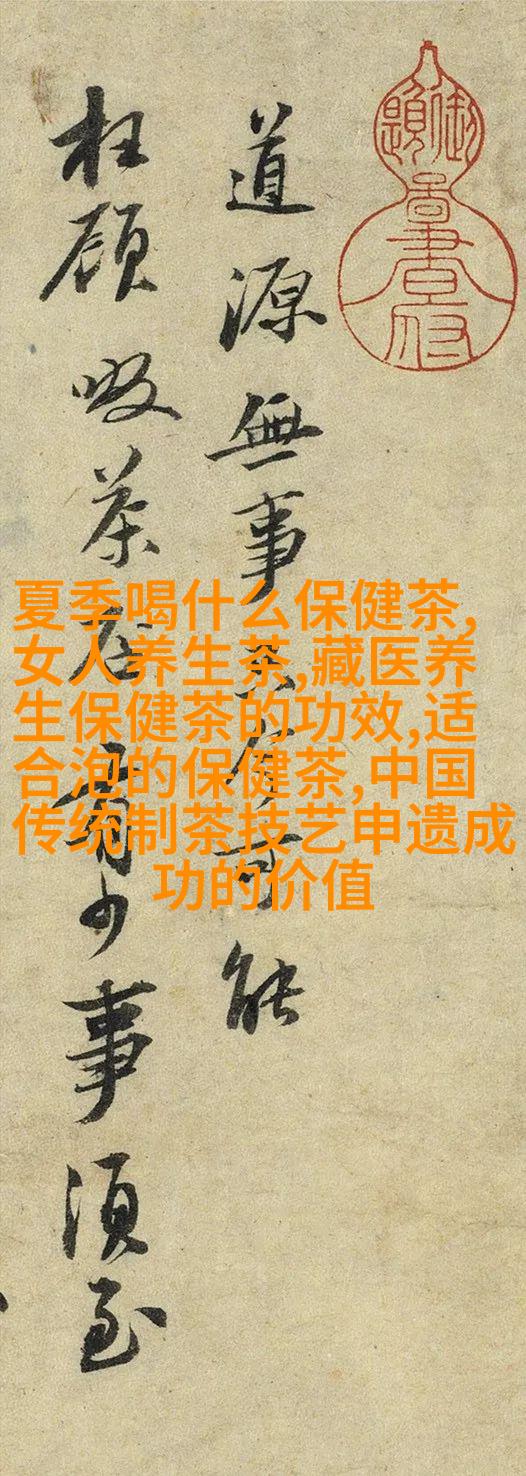 道源無事只今可能
枉顧啜茶否有少事須至
夏季喝什么保健茶,
女人养生茶,藏医养
生保健茶的功效,适
合泡的保健茶,中国
传统制茶技艺申遗成
功的价值